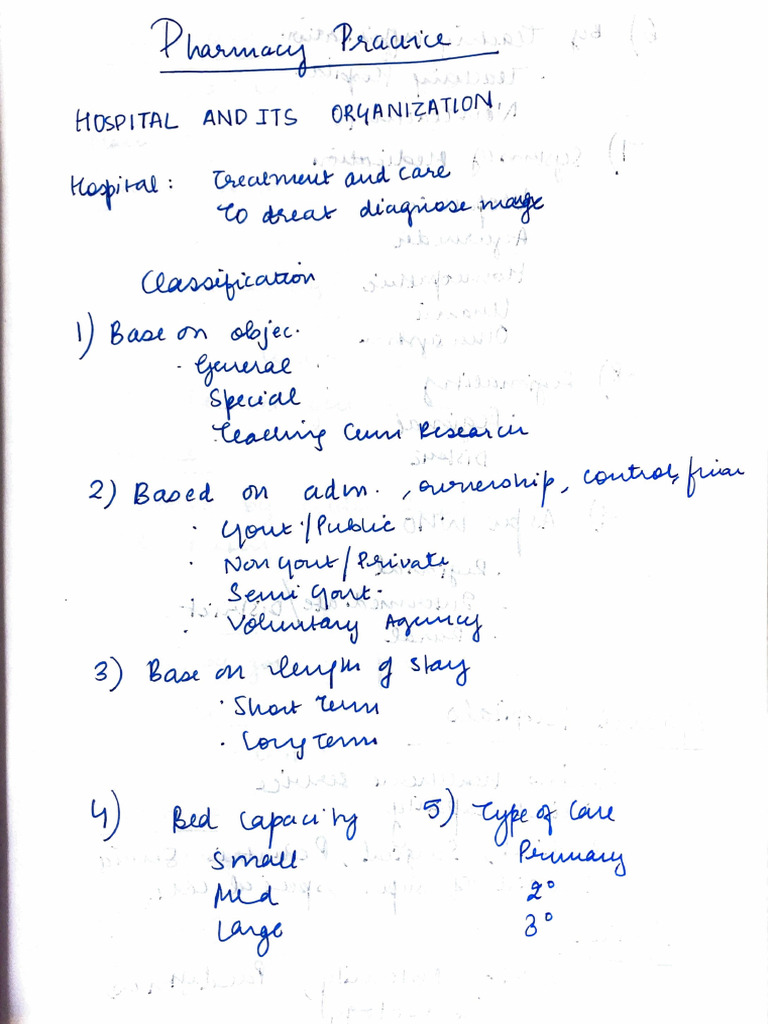 Pharmacy Practice
HOSPITAL AND ITS ORGANIZATION
Hospital: Treatment and care
To treat diagnose
Classification
1) Base on objec.
· General
Special
Teaching Cum Research
2) Based on adm., ownership, control,
· Govt./Public
· Non Govt/Private
· Semi Govt.
· Voluntary Agency
3) Base on length of stay
· Short Term
· Long Term
4) Bed Capacity
Small
Med
Large
5) Type of Care
Primary
2°
3°